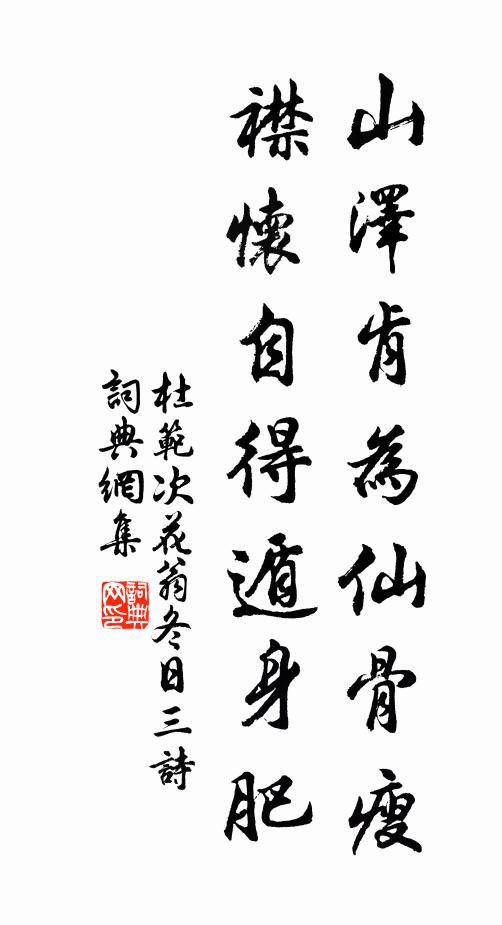 山澤肯為仙骨瘦
襟懷自得遁身肥
杜範次花翁冬日三詩
詞典網集
詞典網印